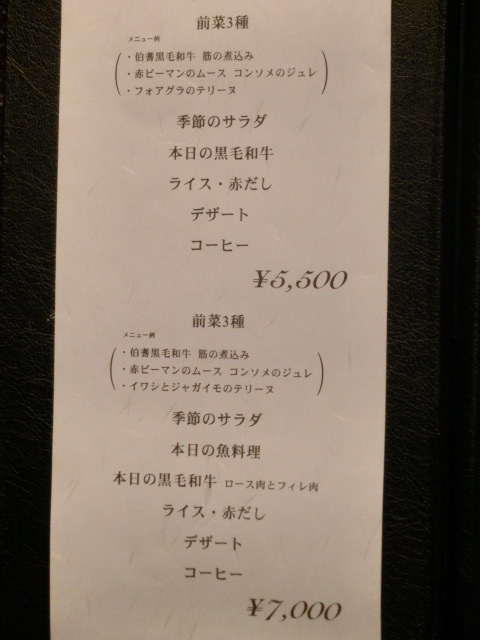 前菜3種
メニュー例
・伯耆黒毛和牛 筋の煮込み
・赤ピーマンのムース コンソメのジュレ
・フォアグラのテリーヌ
季節のサラダ
本日の黒毛和牛
ライス・赤だし
デザート
コーヒー
¥5,500
前菜3種
メニュー例
・伯耆黒毛和牛 筋の煮込み
・赤ピーマンのムース コンソメのジュレ
・イワシとジャガイモのテリーヌ
季節のサラダ
本日の魚料理
本日の黒毛和牛 ロース肉とフィレ肉
ライス・赤だし
デザート
コーヒー
¥7,000